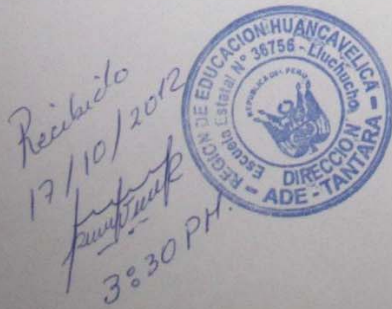 Recibido
17/10/2012
3:30 PM.
REGION DE EDUCACION HUANCAVELICA -
Escuela Estatal Nº 36756 - Lluchucho
REPUBLICA DEL PERU
DIRECCION
- ADE - TANTARA